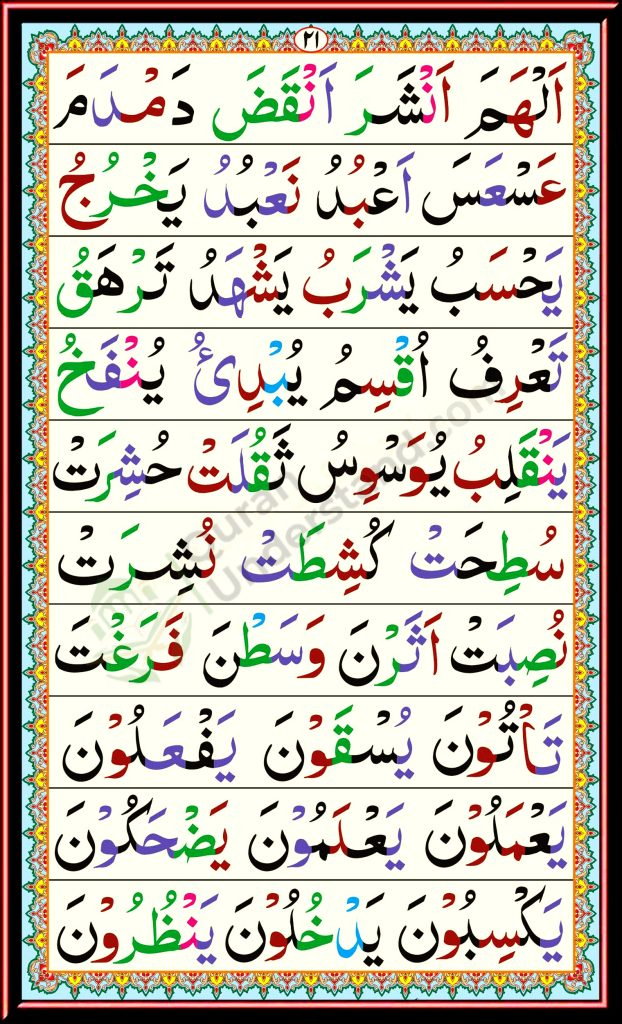 ٢١
اَلْهَمَ اَنْشَرَ اَنْقَضَ دَمْدَمَ
عَسْعَسَ اَعْبُدُ نَعْبُدُ يَخْرُجُ
يَحْسَبُ يَشْرَبُ يَشْهَدُ تَرْهَقُ
تَعْرِفُ اُقْسِمُ يُبْدِئُ يُنْفَخُ
يَنْقَلِبُ يُوَسْوِسُ ثَقُلَتْ حُشِرَتْ
سُطِحَتْ كُشِطَتْ نُشِرَتْ
نُصِبَتْ اَثَرْنَ وَسَطْنَ فَرَغْتَ
تَاْتُوْنَ يُسْقَوْنَ يَفْعَلُوْنَ
يَعْمَلُوْنَ يَعْلَمُوْنَ يَضْحَكُوْنَ
يَكْسِبُوْنَ يَدْخُلُوْنَ يَنْظُرُوْنَ
Quran
Understand.com